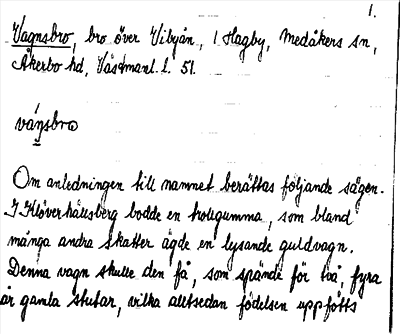 1.
Vagnsbro, bro över Vibyån, i Hagby, Medåkers sn,
Åkerbo hd, Västmanl. l. 51.
vánsbro
Om anledningen till namnet berättas följande sägen.
I Klöverhällsberg bodde en trollgumma, som bland
många andra skatter ägde en lysande guldvagn.
Denna vagn skulle den få, som spände för två, fyra
år gamla stutar, vilka alltsedan födelsen uppfötts